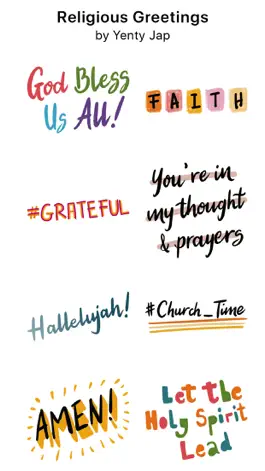 Religious Greetings
by Yenty Jap
God Bless
Us All!
FAITH
#GRATEFUL
You're in
my thought
& prayers
Hallelujah!
#Church_Time
AMEN!
Let the
Holy Spirit
Lead